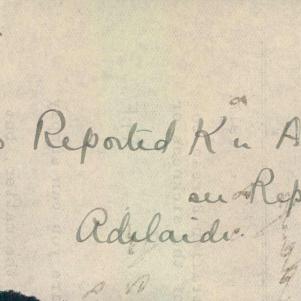 s Reported K in A
see Rep
Adelaide.